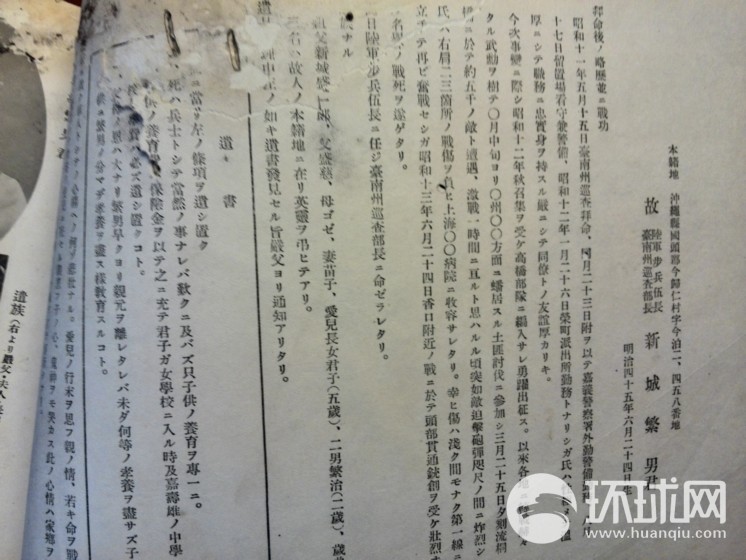 本籍地 沖繩縣國頭郡今歸仁村字今泊二、四五八番地
故
陸軍步兵伍長
臺南州巡查部長
新城繁男君
明治四十五年六月二十四日生
拜命後ノ略歷並ニ戰功
昭和十一年五月十五日臺南州巡查拜命、同月二十三日附ヲ以テ嘉義警察署外勤警備
十七日留置場看守兼警備、昭和十二年一月二十六日榮町派出所勤務トナリシガ氏ハ
厚ニシテ職務ニ忠實身ヲ持スル嚴ニシテ同僚トノ友誼厚カリキ。
今次事變ニ際シ昭和十二年秋召集ヲ受ケ高橋部隊ニ編入サレ勇躍出征ス。以來各地ニ
タル武勳ヲ樹テ〇月中旬ヨリ〇州〇〇方面ニ蟠居スル土匪討伐ニ參加シ三月二十五日夕刻流桐
橋ニ於テ約五千ノ敵ト遭遇、激戰一時間ニ亘ルト思ハルル頃突如敵迫擊砲彈咫尺ノ間ニ炸烈シ
氏ハ右肩ニ三箇所ノ戰傷ヲ負ヒ上海〇〇病院ニ收容サレタリ。幸ヒ傷ハ淺ク間モナク第一線ニ
立チテ再ビ奮戰セシガ昭和十三年六月二十四日香口附近ノ戰ニ於テ頭部貫通銃創ヲ受ケ壯烈
名譽ノ戰死ヲ遂ゲタリ。
日陸軍步兵伍長ニ任ジ臺南州巡查部長ニ命ゼラレタリ。
ナル
祖父新城盛一郎、父盛慈、母ゴゼ、妻苗子、愛兒長女君子(五歲)、二男繁治(二歲)、
三名、故人ノ本籍地ニ在リ英靈ヲ弔ヒテアリ。
ノ如キ遺書發見セル旨嚴父ヨリ通知アリタリ。
遺書
ニ當リ左ノ條項ヲ遺シ置ク
死ハ兵士トシテ當然ノ事ナレバ歎クニ及バズ只子供ノ養育ヲ專一ニ。
供ノ養育ハ保險金ヲ以テ之ニ充テ君子ガ女學校ニ入ル時及嘉壽雄ノ中學
必ズ遺シ置クコト。
父ノ恩ハ大ナリ繁男早クヨリ親元ヲ離レタレバ未ダ何等ノ孝養ヲ盡サズ子
供ニ繁男ノ分マデ孝養ヲ盡ス樣敎育スルコト。
愛兒ノ行末ヲ思フ親ノ情、若キ命ヲ戰
此ノ心情ハ家鄉ヲ
遺族(右より嚴父・夫人・長
环球网
www.huanqiu.com